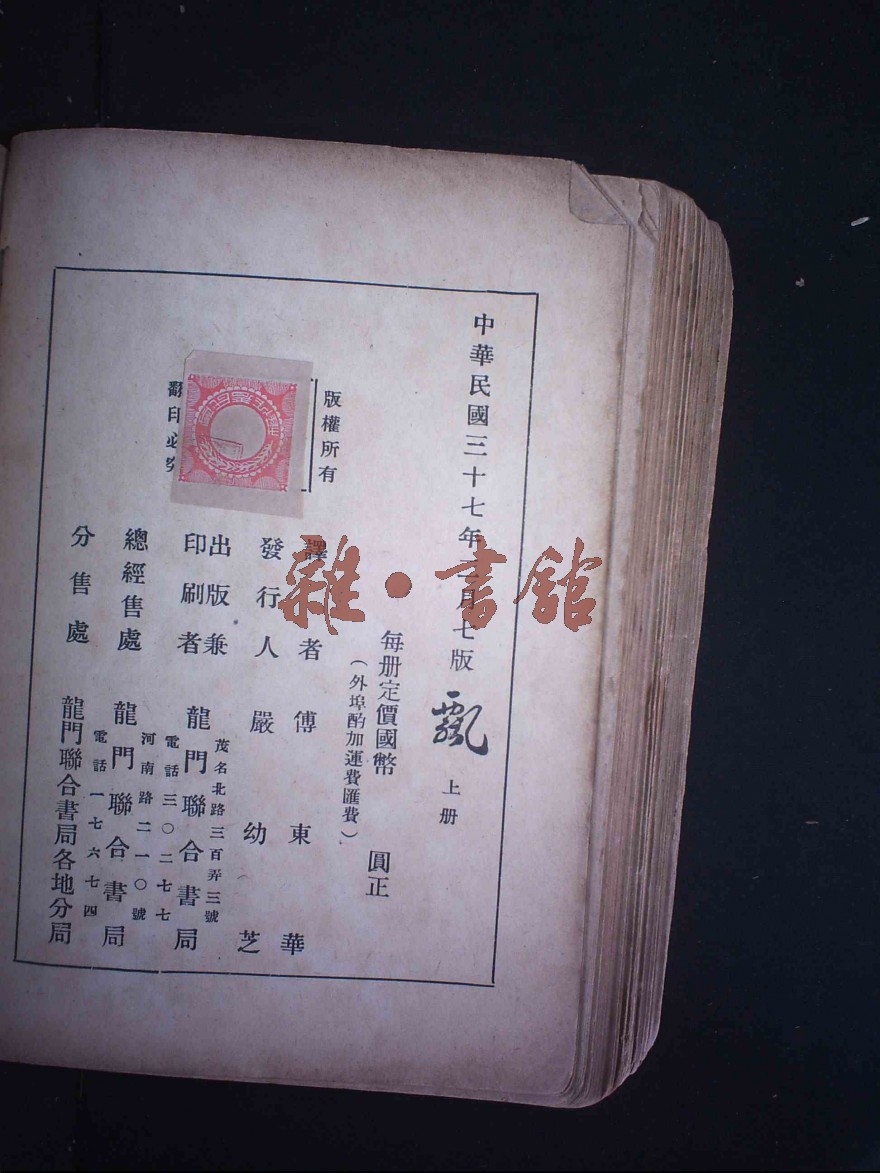 中華民國三十七年二月七版
飄 上册
每册定價國幣 圓正
（外埠酌加運費匯費）
版權所有
翻印必究
譯者 傅東華
發行人 嚴幼芝
出版兼
印刷者
龍門聯合書局
茂名北路三百弄三號
電話三〇二七七
總經售處 龍門聯合書局
河南路二一〇號
電話一七六七四
分售處 龍門聯合書局各地分局
雜·書館